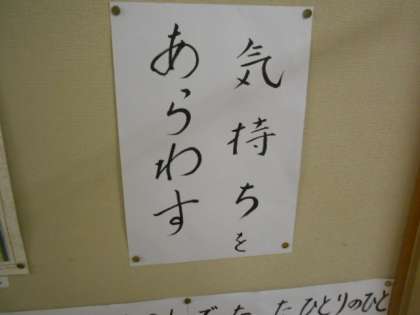 気持ちを
あらわす
ひとりのひと